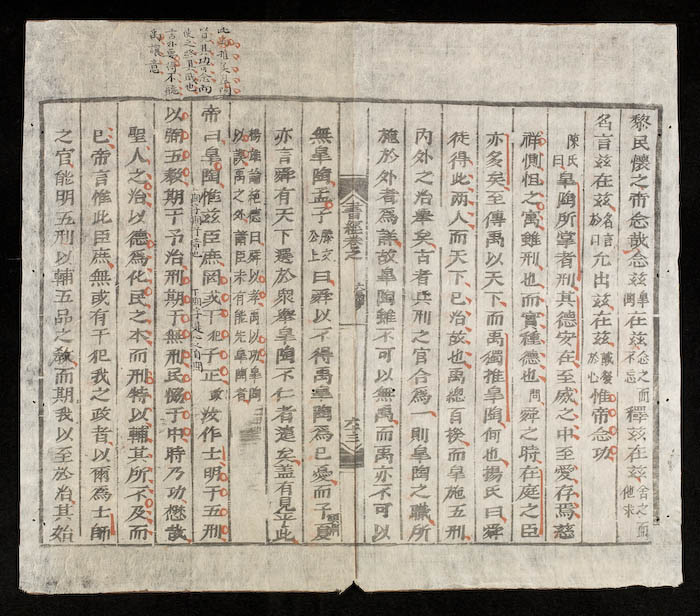 黎民懷之帝念哉念茲臯陶在茲念之而不忘釋茲在茲舍之而他求
名言茲在茲名言於口允出茲在茲誠發於心惟帝念功
陳氏曰臯陶所掌者刑其德安在至威之中至愛存焉慈
祥惻怛之寓雖刑也而實種德也問舜之時在庭之臣
亦多矣至傳禹以天下而禹獨推臯陶何也楊氏曰舜
徒得此兩人而天下已治故也禹總百揆而臯施五刑
內外之治舉矣古者兵刑之官合為一則臯陶之職所
施於外者為謙故臯陶雖不可以無禹而禹亦不可以
書經卷之
六十三
無臯陶孟子滕文公上曰舜以不得禹臯陶為己憂而子夏
亦言舜有天下選於衆舉臯陶不仁者遠矣蓋有見乎此
楊雄論絕德曰舜以孝禹以功臯陶
以謨禹之外蕭臣未有能先臯陶者
帝曰臯陶惟茲臣庶罔或干犯予正政汝作士明于五刑
以弼五敎期于予治刑期于無刑民協于中時乃功懋哉
聖人之治以德為化民之本而刑特以輔其所不及而
已帝言惟此臣庶無或有干犯我之政者以爾為士師
之官能明五刑以輔五品之敎而期我以至於治其始